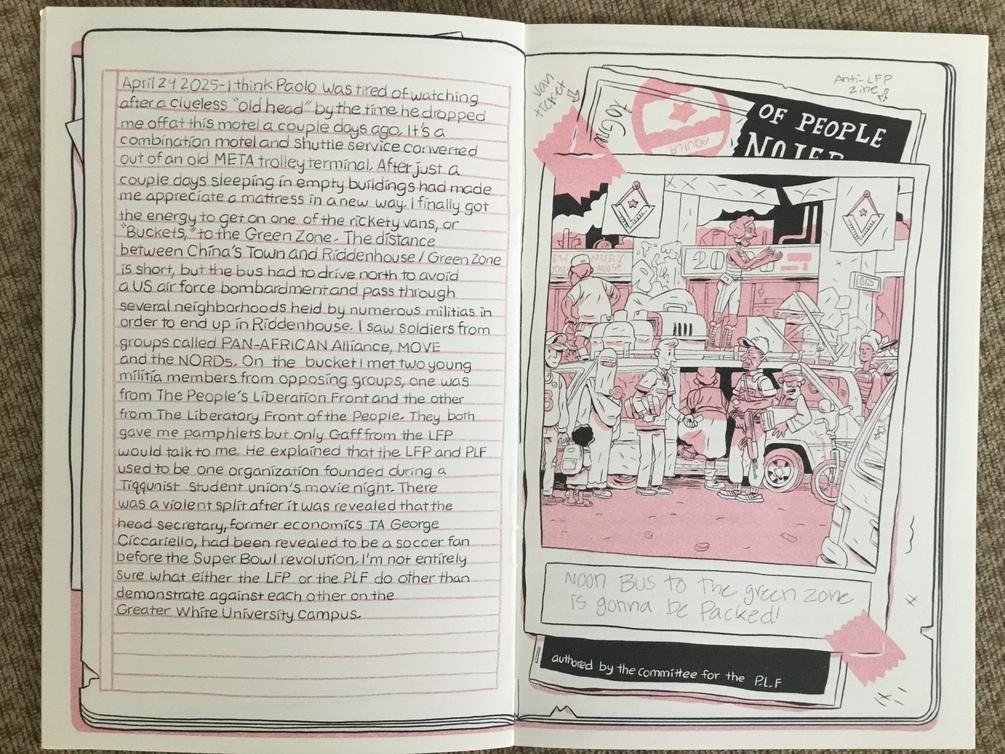 April 24 2025-I think Paolo was tired of watching
after a clueless "old head" by the time he dropped
me off at this motel a couple days ago. It's a
combination motel and shuttle service converted
out of an old META trolley terminal. After just a
couple days sleeping in empty buildings had made
me appreciate a mattress in a new way. I finally got
the energy to get on one of the rickety vans, or
"Buckets," to the Green Zone. The distance
between China's Town and Riddenhouse/Green Zone
is short, but the bus had to drive north to avoid
a US air force bombardment and pass through
several neighborhoods held by numerous militias in
order to end up in Riddenhouse. I saw soldiers from
groups called PAN-AFRICAN Alliance, MOVE
and the NORDs. On the bucket I met two young
militia members from opposing groups, one was
from The People's Liberation Front and the other
from The Liberatory Front of the People. They both
gave me pamphlets but only Gaff from the LFP
would talk to me. He explained that the LFP and PLF
used to be one organization founded during a
Tiqqunist student union's movie night. There
was a violent split after it was revealed that the
head secretary, former economics TA George
Ciccariello, had been revealed to be a soccer fan
before the Super Bowl revolution. I'm not entirely
sure what either the LFP or the PLF do other than
demonstrate against each other on the
Greater White University campus.
van
ticket
Anti-LFP
zine
AQUILA
OF PEOPLE
Noon Bus to the green zone
is gonna be packed!
authored by the committee for the P.L.F